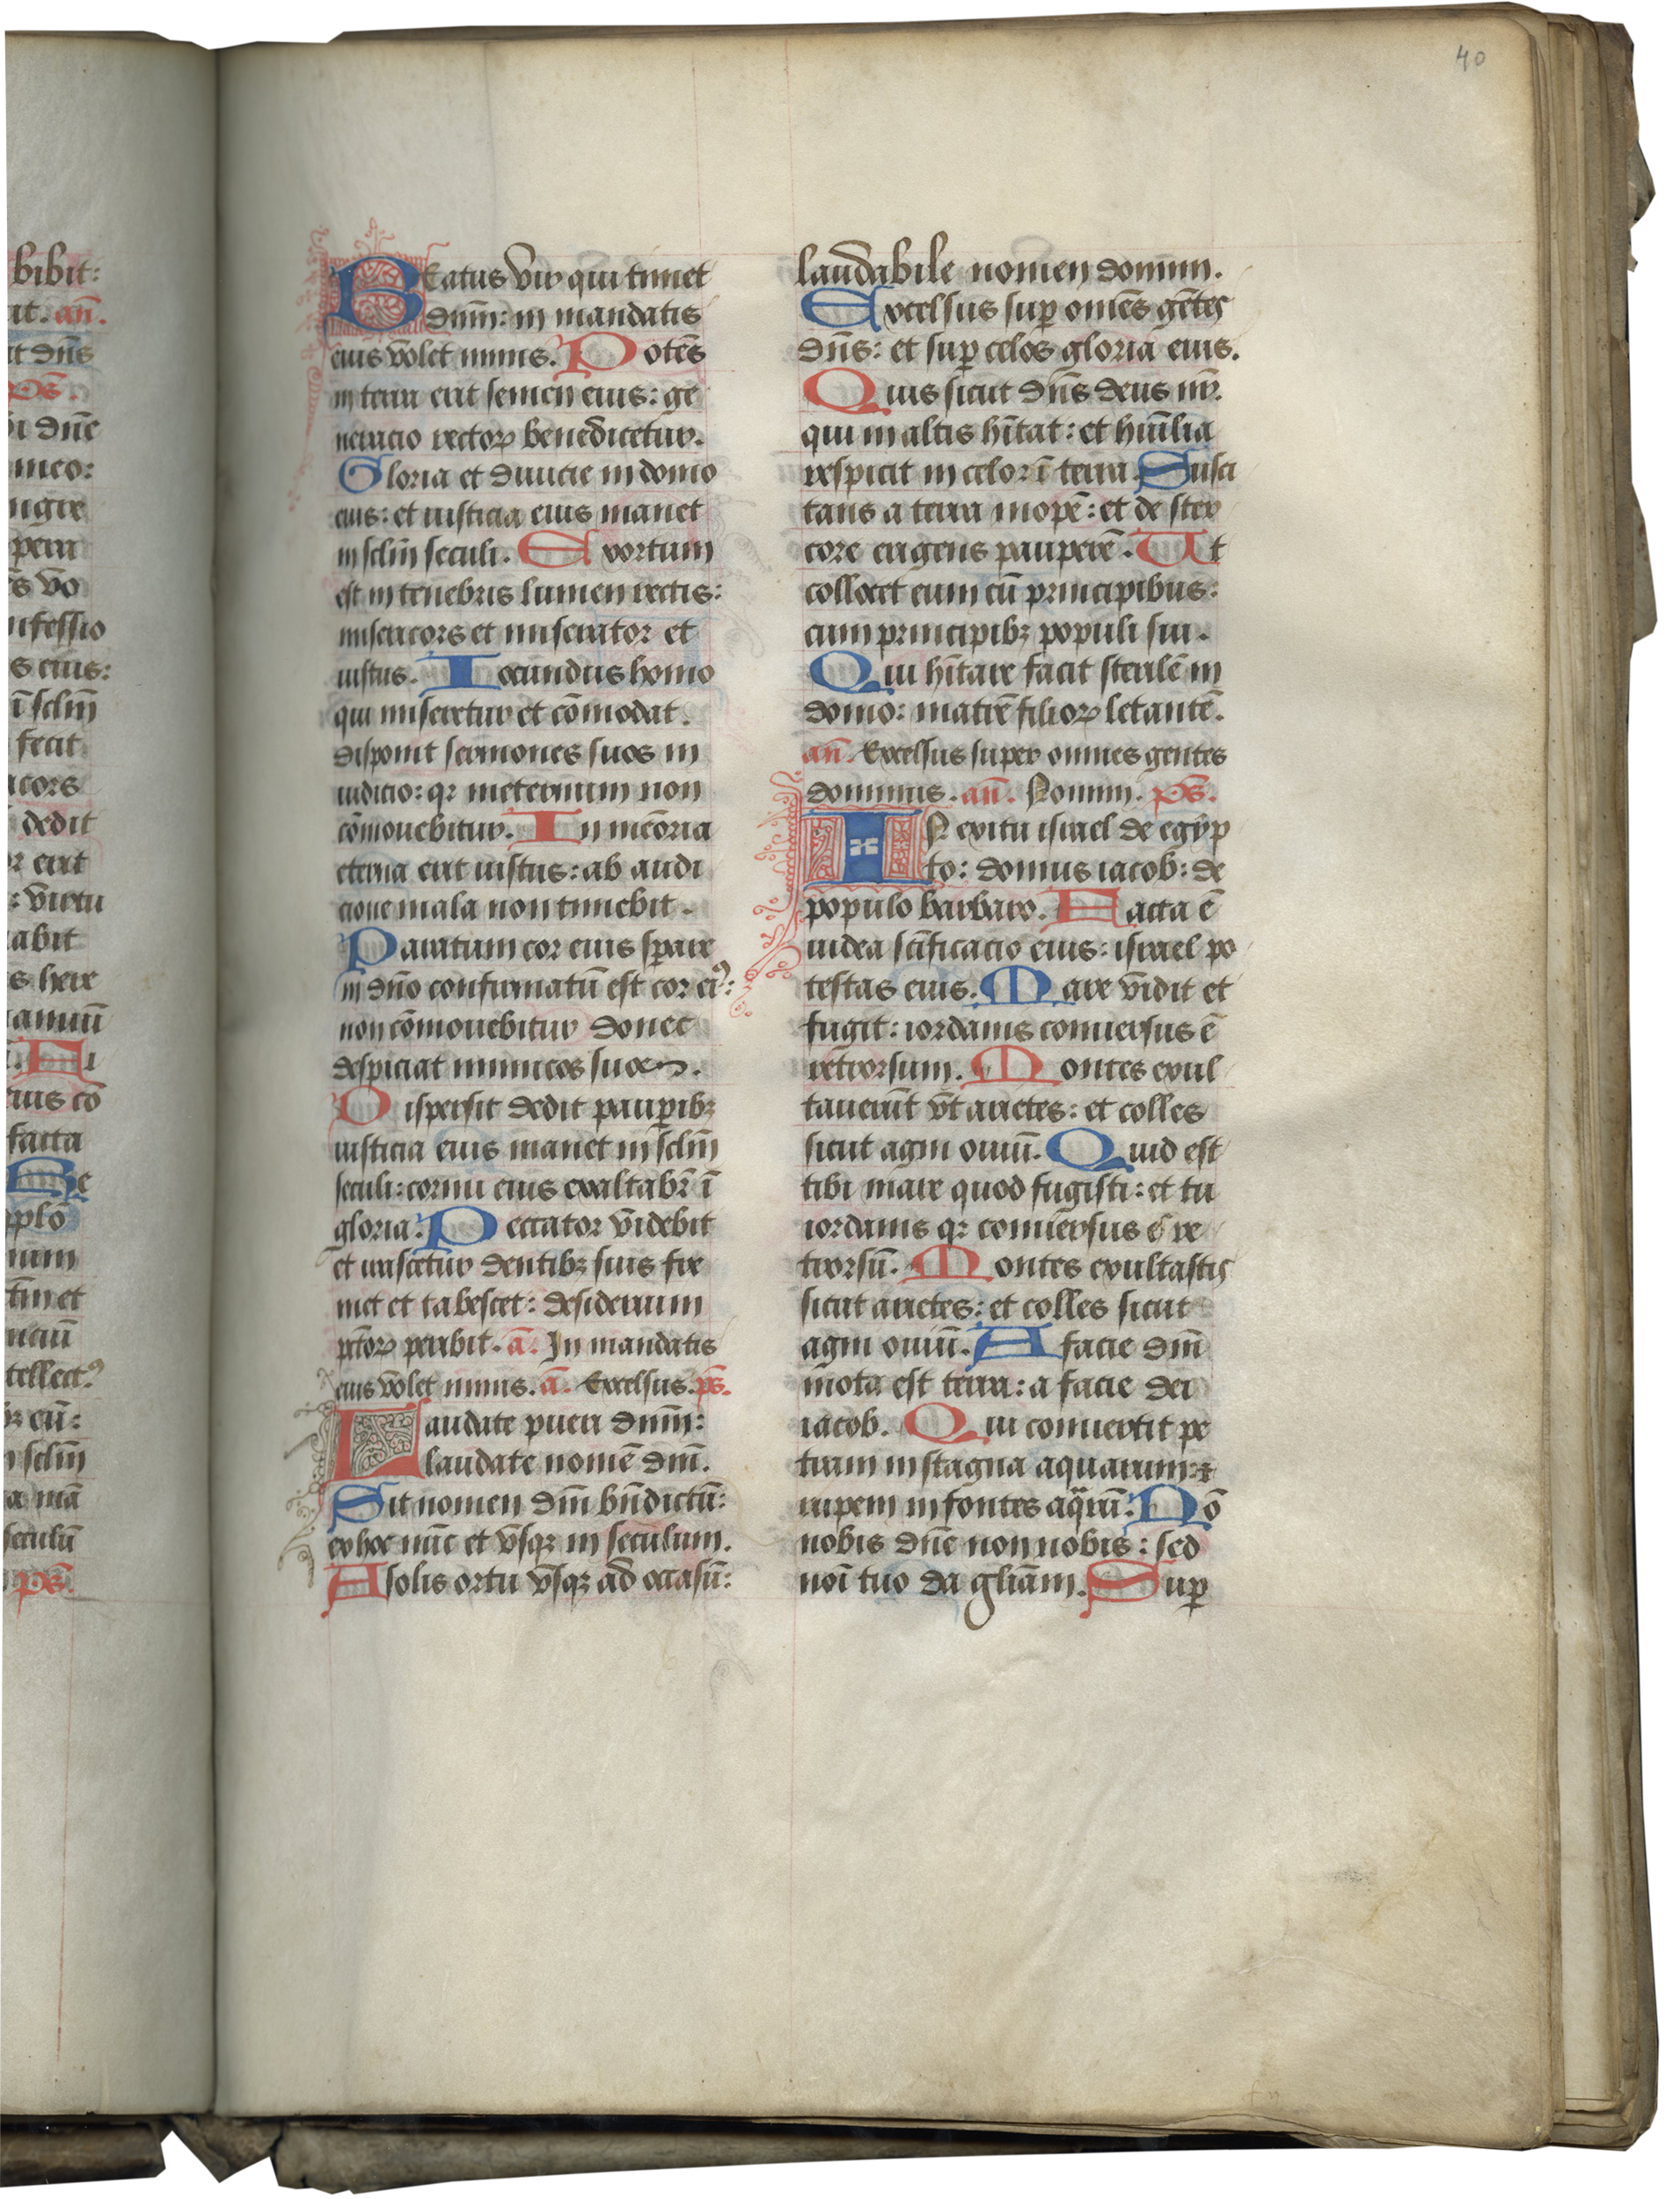 bibit:
it. an̄.
it dn̄s
ps̄.
i dn̄e
meo:
ugie
s vo
nfessio
s eius:
ī sclm̄
fecit
cors
dedit
r erit
: virtu
abit
s here
eius cō
facta
Be
pplō
num
tellect⁹
eū:
sclm̄
seculū
ps̄.
40
Beatus vir qui timet
dnm̄: in mandatis
eius volet nimis. Potēs
in terra erit semen eius: ge
neracio rectoꝝ benedicetur.
Gloria et diuicie in domo
eius: et iusticia eius manet
in sclm̄ seculi. Exortum
est in tenebris lumen rectis:
misericors et miserator et
iustus. Iocundus homo
qui miseretur et cōmodat.
disponit sermones suos in
iudicio: qꝛ ineternum non
cōmouebitur. In meōria
eterna erit iustus: ab audi
cione mala non timebit.
Paratum cor eius sꝑare
in dn̄o confirmatū est cor ei⁹:
non cōmouebitur donec
despiciat inimicos suos.
Dispersit dedit pauꝑibꝫ
iusticia eius manet in sclm̄
seculi: cornu eius exaltabr̄ ī
gloria. Peccator videbit
et irascetur dentibꝫ suis fre
met et tabescet: desiderium
pctōꝝ peribit. a͞. In mandatis
eius volet nimis. a͞. Excelsus. ps̄.
Laudate pueri dnm̄:
laudate nomē dm̄.
Sit nomen dm̄ bn̄dictū:
ex hoc nūc et vsqꝫ in seculum.
A solis ortu vsqꝫ ad occasū:
laudabile nomen domini.
Excelsus suꝑ omēs gētes
dn̄s: et suꝑ celos gloria eius.
Quis sicut dn̄s deus nr̄.
qui in altis hītat: et hūīlia
respicit in celo ꝛ ī terra. Susci
tans a terra inopē: et de ster
core erigens pauperē. Ut
collocet eum cū principibus:
cum principibꝫ populi sui.
Qui hītare facit sterilē in
domo: matrē filioꝝ letantē.
an̄. Excelsus super omnes gentes
dominus. an̄. Domini. ps̄.
IN exitu israel de egyp
to: domus iacob: de
populo barbaro. Facta ē
iudea scīficacio eius: israel po
testas eius. Mare vidit et
fugit: iordanis conuersus ē
retrorsum. Montes exul
tauerūt vt arietes: et colles
sicut agni ouiū. Quid est
tibi mare quod fugisti: et tu
iordanis qꝛ conuersus es re
trorsū. Montes exultastis
sicut arietes: et colles sicut
agni ouiū. A facie dm̄
mota est terra: a facie dei
iacob. Qui conuertit pe
tram in stagna aquarum: ⁊
rupem in fontes aq̄rū. Nō
nobis dn̄e non nobis: sed
noī tuo da gliām. Suꝑ